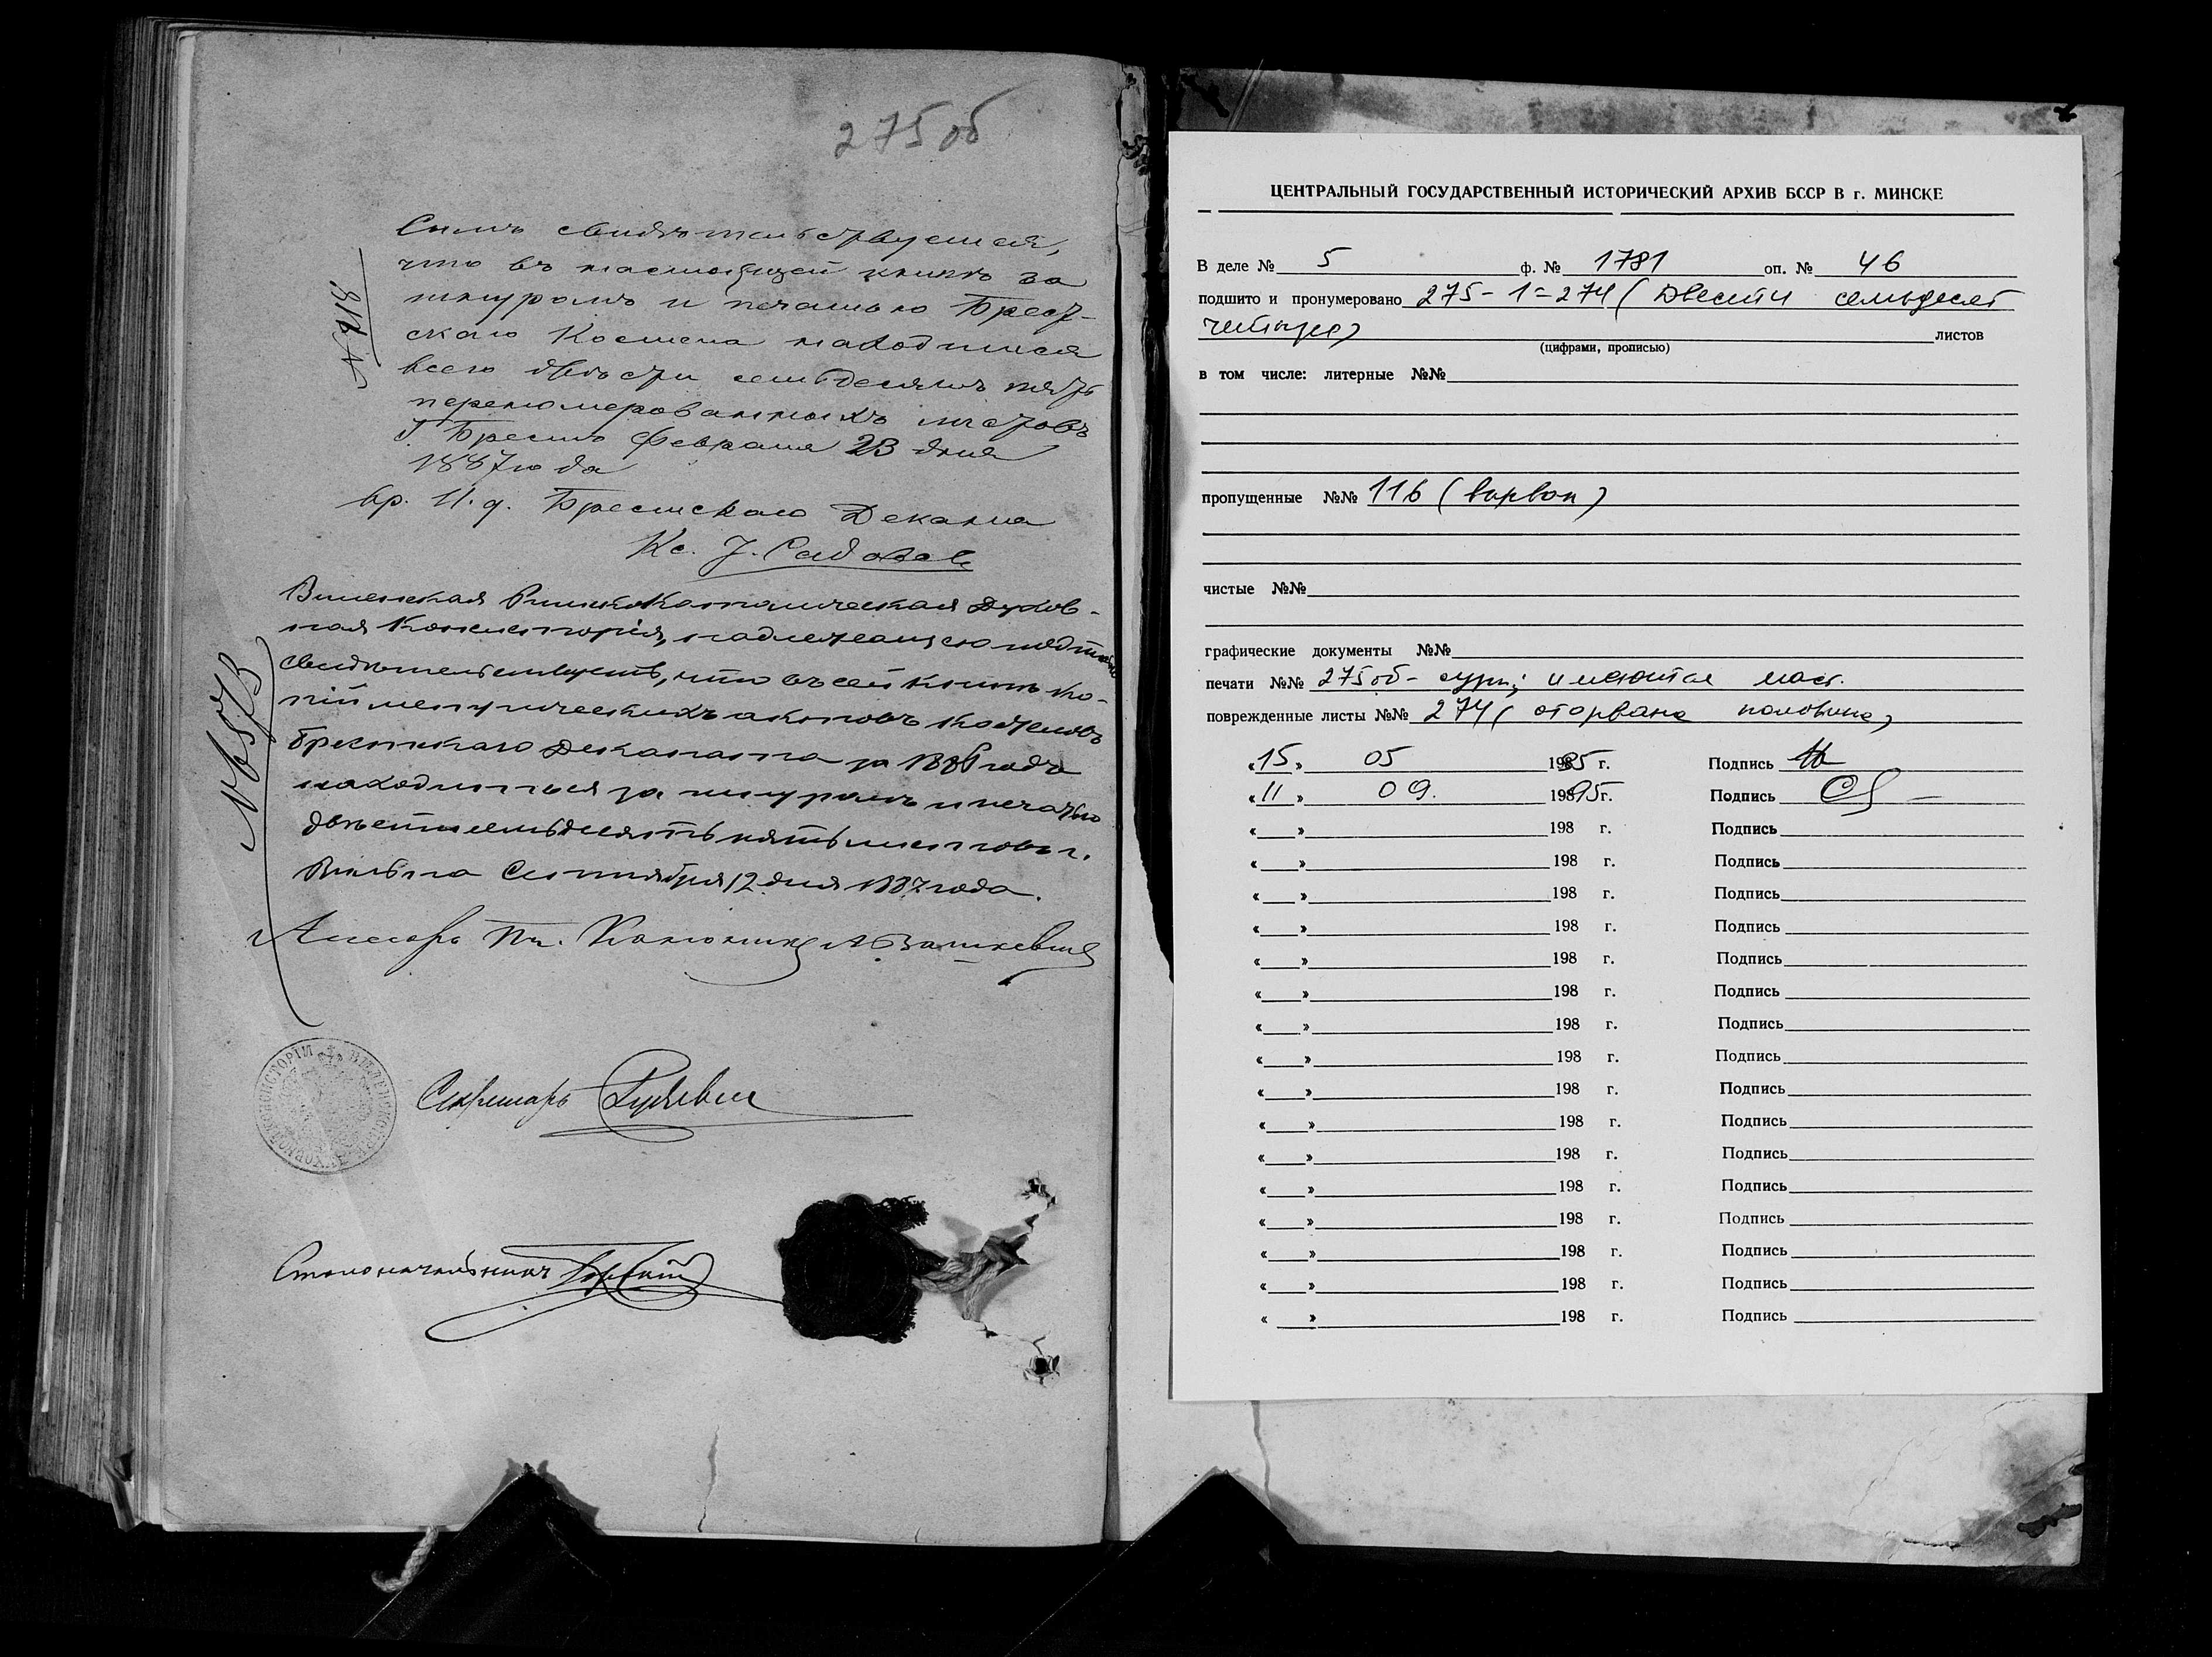 275 об
№ 718
Симъ свидѣтельствуется,
что въ настоящей книгѣ за
шнуромъ и печатью Брест-
скаго Костела находится
всего двѣсти семьдесятъ пять
перенумерованныхъ листовъ
г. Брестъ Февраля 23 дня
1887 года
Вр. И. д. Брестскаго Декана
Кс. J.
Виленская Римскокатолическая Духов-
ная Консисторія, надлежащею подписью
свидѣтельствуетъ, что въ сей книгѣ ко-
пій метрическихъ актовъ костеловъ
Брестскаго Деканата за 1886 годъ
находится за шнуромъ и печатью
двѣсти семьдесятъ пять листовъ г.
Вильна Сентября 12 дня 1887 года.
Ассесоръ Каноникъ
Секретарь
Столоначальникъ
ЦЕНТРАЛЬНЫЙ ГОСУДАРСТВЕННЫЙ ИСТОРИЧЕСКИЙ АРХИВ БССР В г. МИНСКЕ
В деле № 5 ф. № 1781 оп. № 46
подшито и пронумеровано 275-1=274 (Двести семьдесят
четыре) листов
(цифрами, прописью)
в том числе: литерные №№
пропущенные №№ 116 (вырван)
чистые №№
графические документы №№
печати №№ 275об - сург; имеются маст.
поврежденные листы №№ 274 (оторвана половина)
«15» 05 1985 г. Подпись
«11» 09. 1995 г. Подпись
« » 198 г. Подпись
« » 198 г. Подпись
« » 198 г. Подпись
« » 198 г. Подпись
« » 198 г. Подпись
« » 198 г. Подпись
« » 198 г. Подпись
« » 198 г. Подпись
« » 198 г. Подпись
« » 198 г. Подпись
« » 198 г. Подпись
« » 198 г. Подпись
« » 198 г. Подпись
« » 198 г. Подпись
« » 198 г. Подпись
« » 198 г. Подпись